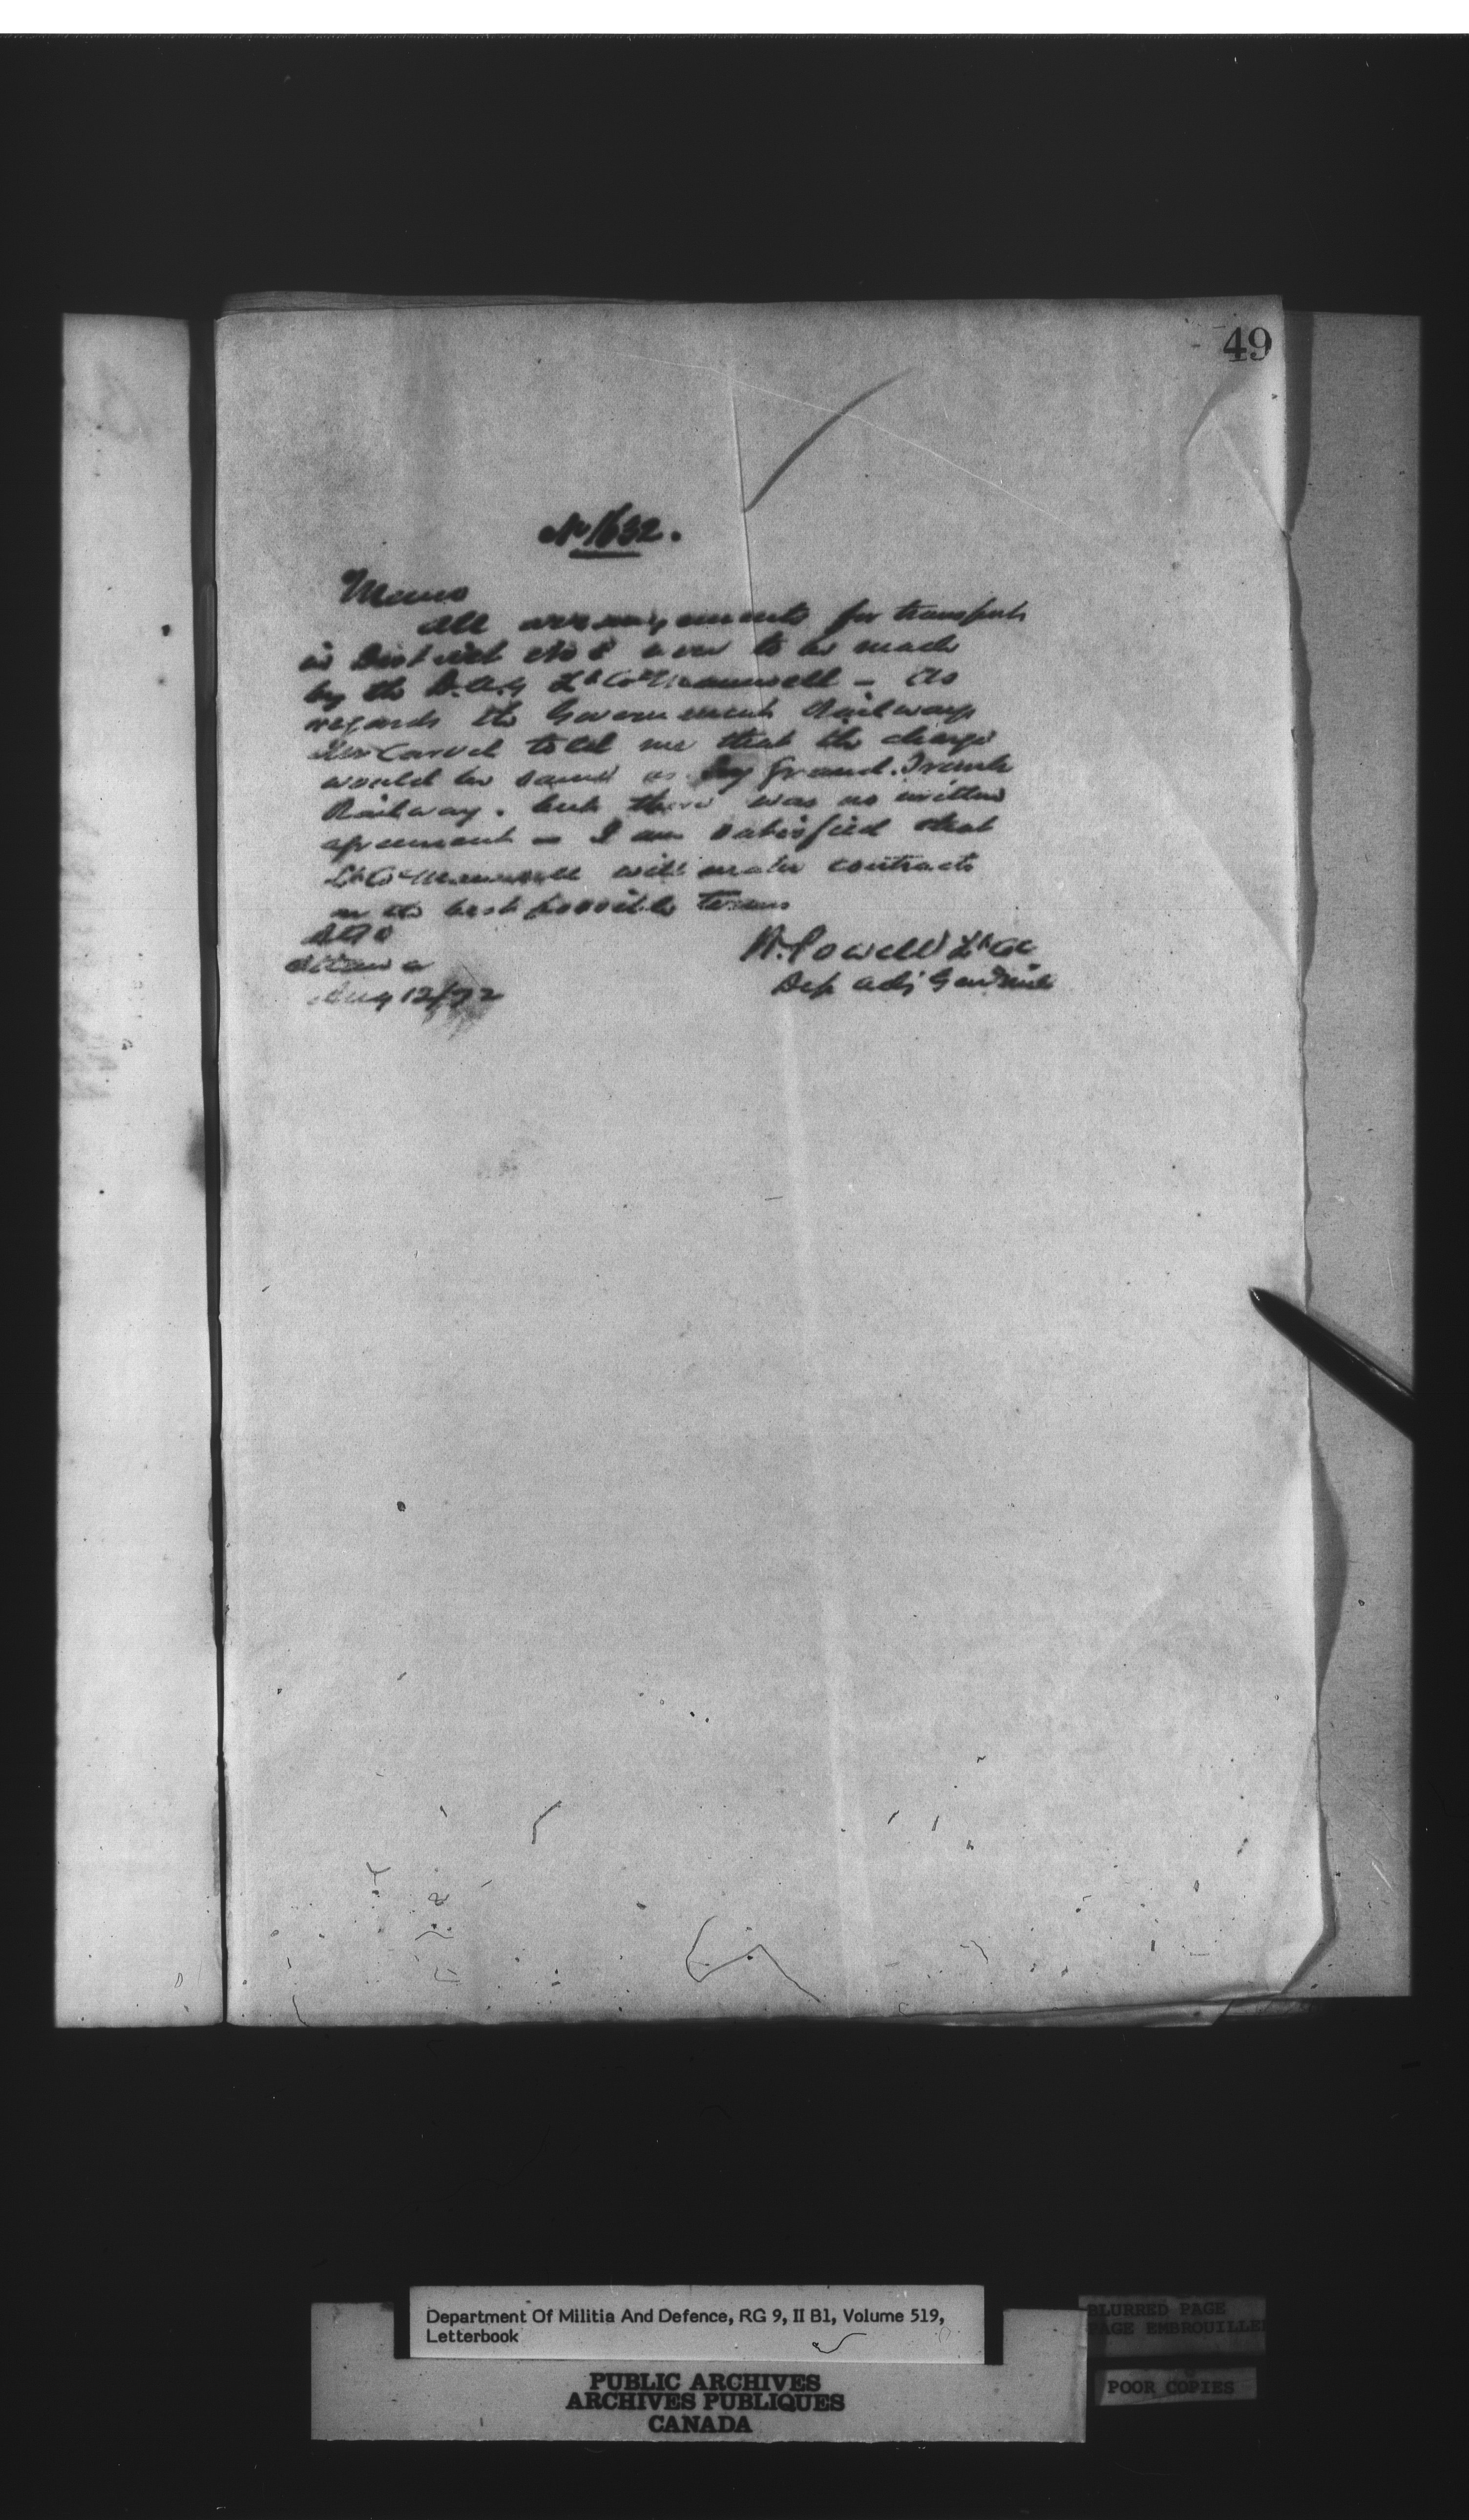 49
No 1632.
Memo
All arrangements for transport
in District No 8 were to be made
by the D.A.G Lt Col Maunsell - As
regards the Government Railways
Mr Carvell told me that the charge
would be same as by Grand Trunk
Railway. but there was no written
agreement - I am satisfied that
Lt Col Maunsell will make contracts
on the best possible terms
Ottawa
Aug 12/72
W. Powell Lt Col
Dep Adj Gen
Department Of Militia And Defence, RG 9, II B1, Volume 519,
Letterbook
BLURRED PAGE
PAGE EMBROUILLEE
POOR COPIES
PUBLIC ARCHIVES
ARCHIVES PUBLIQUES
CANADA